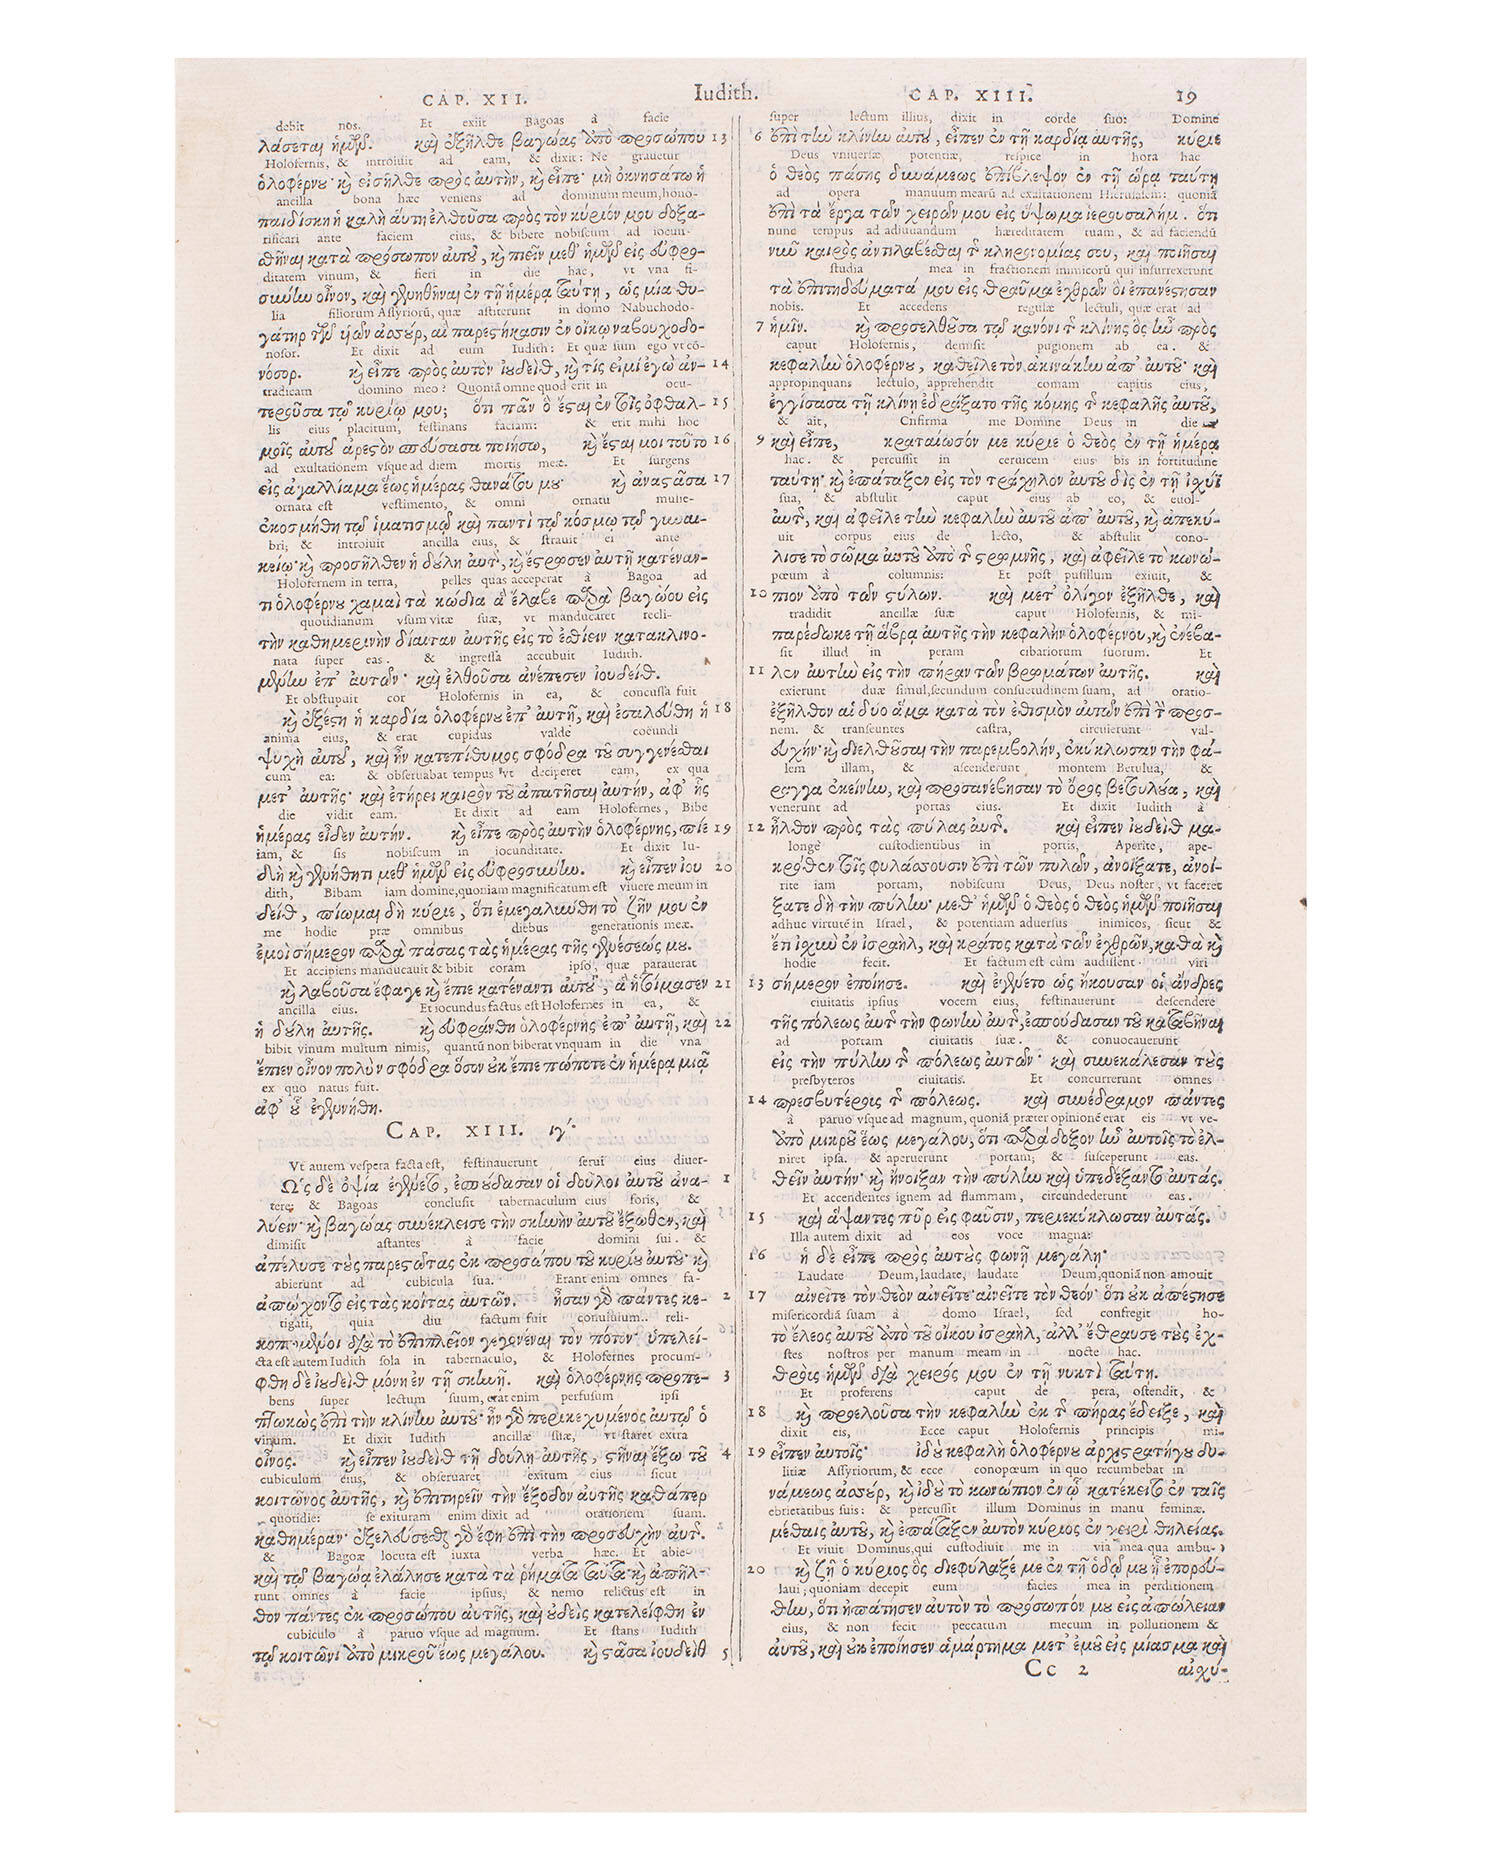 CAP. XII.
Iudith.
CAP. XIII.
19
debit nos. Et exiit Bagoas à facie
λάσεται ἡμῶν. καὶ ἐξῆλθε βαγώας ἀπὸ προσώπου 13
Holofernis, & introiuit ad eam, & dixit: Ne grauetur
ὀλοφέρνου· καὶ εἰσῆλθε πρὸς αὐτὴν, καὶ εἶπε· μὴ ὀκνησάτω ἡ
ancilla bona hæc veniens ad dominum meum, hono-
παιδίσκη ἡ καλὴ αὕτη ἐλθοῦσα πρὸς τὸν κύριόν μου δοξα-
rificari ante faciem eius, & bibere nobiscum ad iocun-
σθῆναι κατὰ πρόσωπον αὐτοῦ, καὶ πιεῖν μεθ' ἡμῶν εἰς εὐφρο-
ditatem vinum, & fieri in die hac, vt vna fi-
σύνην οἶνον, καὶ γενηθῆναι ἐν τῇ ἡμέρᾳ ταύτῃ, ὡς μία θυ-
lia filiorum Assyriorū, quæ astiterunt in domo Nabuchodo-
γάτηρ τῶν υἱῶν ἀσσούρ, αἳ παρεστήκασιν ἐν οἴκῳ ναβουχοδο-
nosor. Et dixit ad eum Iudith: Et quæ sum ego vt cō-
νόσορ. καὶ εἶπε πρὸς αὐτὸν ἰουδεὶθ, καὶ τίς εἰμί ἐγὼ ἀν- 14
tradicam domino meo? Quoniā omne quod erit in ocu-
τεροῦσα τῷ κυρίῳ μου; ὅτι πᾶν ὃ ἔσται ἐν τοῖς ὀφθαλ- 15
lis eius placitum, festinans faciam: & erit mihi hoc
μοῖς αὐτοῦ ἀρεστὸν σπεύσασα ποιήσω, καὶ ἔσται μοι τοῦτο 16
ad exultationem vsque ad diem mortis meæ. Et surgens
εἰς ἀγαλλίαμα ἕως ἡμέρας θανάτου μου· καὶ ἀναστᾶσα 17
ornata est vestimento, & omni ornatu mulie-
ἐκοσμήθη τῷ ἱματισμῷ καὶ παντὶ τῷ κόσμῳ τῷ γυναι-
bri; & introiuit ancilla eius, & strauit ei ante
κείῳ· καὶ προσῆλθεν ἡ δούλη αὐτῆς, καὶ ἔστρωσεν αὐτῇ κατέναν-
Holofernem in terra, pelles quas acceperat à Bagoa ad
τι ὀλοφέρνου χαμαὶ τὰ κώδια ἃ ἔλαβε παρὰ βαγώου εἰς
quotidianum vsum vitæ suæ, vt manducaret recli-
τὴν καθημερινὴν δίαιταν αὐτῆς εἰς τὸ ἐσθίειν κατακλινο-
nata super eas. & ingressa accubuit Iudith.
μένην ἐπ' αὐτῶν· καὶ ἐλθοῦσα ἀνέπεσεν ἰουδείθ.
Et obstupuit cor Holofernis in ea, & concussa fuit
καὶ ἐξέστη ἡ καρδία ὀλοφέρνου ἐπ' αὐτῇ, καὶ ἐσαλεύθη ἡ 18
anima eius, & erat cupidus valdè coëundi
ψυχὴ αὐτοῦ, καὶ ἦν κατεπίθυμος σφόδρα τοῦ συγγενέσθαι
cum ea: & obseruabat tempus vt deciperet eam, ex qua
μετ' αὐτῆς· καὶ ἐτήρει καιρὸν τοῦ ἀπατῆσαι αὐτήν, ἀφ' ἧς
die vidit eam. Et dixit ad eam Holofernes, Bibe
ἡμέρας εἶδεν αὐτήν. καὶ εἶπε πρὸς αὐτὴν ὀλοφέρνης, πίε 19
iam, & sis nobiscum in iocunditate. Et dixit Iu-
δὴ καὶ γενήθητι μεθ' ἡμῶν εἰς εὐφροσύνην. καὶ εἶπεν ἰου 20
dith, Bibam iam domine, quoniam magnificatum est viuere meum in
δείθ, πίομαι δὴ κύριε, ὅτι ἐμεγαλύνθη τὸ ζῆν μου ἐν
me hodie præ omnibus diebus generationis meæ.
ἐμοὶ σήμερον παρὰ πάσας τὰς ἡμέρας τῆς γενέσεώς μου.
Et accipiens manducauit & bibit coram ipso, quæ parauerat
καὶ λαβοῦσα ἔφαγε καὶ ἔπιε κατέναντι αὐτοῦ, ἃ ἡτοίμασεν 21
ancilla eius. Et iocundus factus est Holofernes in ea, &
ἡ δούλη αὐτῆς. καὶ εὐφράνθη ὀλοφέρνης ἐπ' αὐτῇ, καὶ 22
bibit vinum multum nimis, quantū non biberat vnquam in die vna
ἔπιεν οἶνον πολὺν σφόδρα ὅσον οὐκ ἔπιε πώποτε ἐν ἡμέρᾳ μιᾷ
ex quo natus fuit.
ἀφ' οὗ ἐγεννήθη.
CAP. XIII. ιγ'.
Vt autem vespera facta est, festinauerunt serui eius diuer-
Ὡς δὲ ὀψία ἐγένετο, ἐσπούδασαν οἱ δοῦλοι αὐτοῦ ἀνα- 1
tere; & Bagoas conclusit tabernaculum eius foris, &
λύειν· καὶ βαγώας συνέκλεισε τὴν σκηνὴν αὐτοῦ ἔξωθεν, καὶ
dimisit astantes à facie domini sui. &
ἀπέλυσε τοὺς παρεστῶτας ἐκ προσώπου τοῦ κυρίου αὐτοῦ· καὶ
abierunt ad cubicula sua. Erant enim omnes fa-
ἀπῴχοντο εἰς τὰς κοίτας αὐτῶν. ἦσαν γὰρ πάντες κε- 2
tigati, quia diu factum fuit conuiuium. reli-
κοπωμένοι διὰ τὸ ἐπιπλεῖον γεγονέναι τὸν πότον· ὑπελεί-
cta est autem Iudith sola in tabernaculo, & Holofernes procum-
φθη δὲ ἰουδεὶθ μόνη ἐν τῇ σκηνῇ. καὶ ὀλοφέρνης προπε- 3
bens super lectum suum, erat enim perfusum ipsi
πτωκὼς ἐπὶ τὴν κλίνην αὐτοῦ· ἦν γὰρ περικεχυμένος αὐτῷ ὁ
vinum. Et dixit Iudith ancillæ suæ, vt staret extra
οἶνος. καὶ εἶπεν ἰουδεὶθ τῇ δούλῃ αὐτῆς, στῆναι ἔξω τοῦ 4
cubiculum eius, & obseruaret exitum eius sicut
κοιτῶνος αὐτῆς, καὶ ἐπιτηρεῖν τὴν ἔξοδον αὐτῆς καθάπερ
quotidie: se exituram enim dixit ad orationem suam.
καθημέραν· ἐξελεύσεσθαι γὰρ ἔφη ἐπὶ τὴν προσευχὴν αὐτῆς.
& Bagoæ locuta est iuxta verba hæc. Et abie-
καὶ τῷ βαγώᾳ ἐλάλησε κατὰ τὰ ῥήματα ταῦτα· καὶ ἀπῆλ-
runt omnes à facie ipsius, & nemo relictus est in
θον πάντες ἐκ προσώπου αὐτῆς, καὶ οὐδεὶς κατελείφθη ἐν
cubiculo à paruo vsque ad magnum. Et stans Iudith
τῷ κοιτῶνι ἀπὸ μικροῦ ἕως μεγάλου. καὶ στᾶσα ἰουδεὶθ 5
super lectum illius, dixit in corde suo: Domine
6 ἐπὶ τὴν κλίνην αὐτοῦ, εἶπεν ἐν τῇ καρδίᾳ αὐτῆς, κύριε
Deus vniuersæ potentiæ, respice in hora hac
ὁ θεὸς πάσης δυνάμεως ἐπίβλεψον ἐν τῇ ὥρᾳ ταύτῃ
ad opera manuum mearū ad exaltationem Hierusalem: quoniā
ἐπὶ τὰ ἔργα τῶν χειρῶν μου εἰς ὕψωμα ἱερουσαλήμ. ὅτι
nunc tempus ad adiuuandum hæreditatem tuam, & ad faciendū
νῦν καιρὸς ἀντιλαβέσθαι τῆς κληρονομίας σου, καὶ ποιῆσαι
studia mea in fractionem inimicorū qui insurrexerunt
τὰ ἐπιτηδεύματά μου εἰς θραῦμα ἐχθρῶν οἳ ἐπανέστησαν
nobis. Et accedens regulæ lectuli, quæ erat ad
7 ἡμῖν. καὶ προσελθοῦσα τῷ κανόνι τῆς κλίνης ὃς ἦν πρὸς
caput Holofernis, demisit pugionem ab ea. &
κεφαλὴν ὀλοφέρνου, καθεῖλε τὸν ἀκινάκην ἀπ' αὐτοῦ· καὶ
appropinquans lectulo, apprehendit comam capitis eius,
ἐγγίσασα τῇ κλίνῃ ἐδράξατο τῆς κόμης τῆς κεφαλῆς αὐτοῦ,
& ait, Cnfirma me Domine Deus in die
9 καὶ εἶπε, κραταίωσόν με κύριε ὁ θεὸς ἐν τῇ ἡμέρᾳ
hac. & percussit in ceruicem eius bis in fortitudine
ταύτῃ· καὶ ἐπάταξεν εἰς τὸν τράχηλον αὐτοῦ δὶς ἐν τῇ ἰσχύϊ
sua, & abstulit caput eius ab eo, & euol-
αὐτῆς, καὶ ἀφεῖλε τὴν κεφαλὴν αὐτοῦ ἀπ' αὐτοῦ, καὶ ἀπεκύ-
uit corpus eius de lecto, & abstulit cono-
λισε τὸ σῶμα αὐτοῦ ἀπὸ τῆς στρωμνῆς, καὶ ἀφεῖλε τὸ κωνώ-
pœum à columnis: Et post pusillum exiuit, &
10 πιον ἀπὸ τῶν στύλων. καὶ μετ' ὀλίγον ἐξῆλθε, καὶ
tradidit ancillæ suæ caput Holofernis, & mi-
παρέδωκε τῇ ἅβρᾳ αὐτῆς τὴν κεφαλὴν ὀλοφέρνου, καὶ ἐνέβα-
sit illud in peram cibariorum suorum. Et
11 λεν αὐτὴν εἰς τὴν πήραν τῶν βρωμάτων αὐτῆς. καὶ
exierunt duæ simul, secundum consuetudinem suam, ad oratio-
ἐξῆλθον αἱ δύο ἅμα κατὰ τὸν ἐθισμὸν αὐτῶν ἐπὶ τὴν προσ-
nem. & transeuntes castra, circuierunt val-
ευχήν· καὶ διελθοῦσαι τὴν παρεμβολήν, ἐκύκλωσαν τὴν φά-
lem illam, & ascenderunt montem Betulua, &
ραγγα ἐκείνην, καὶ προσανέβησαν τὸ ὄρος βετυλούα, καὶ
venerunt ad portas eius. Et dixit Iudith à
12 ἦλθον πρὸς τὰς πύλας αὐτῆς. καὶ εἶπεν ἰουδεὶθ μα-
longè custodientibus in portis, Aperite, ape-
κρόθεν τοῖς φυλάσσουσιν ἐπὶ τῶν πυλῶν, ἀνοίξατε, ἀνοί-
rite iam portam, nobiscum Deus, Deus noster, vt faceret
ξατε δὴ τὴν πύλην· μεθ' ἡμῶν ὁ θεὸς ὁ θεὸς ἡμῶν ποιῆσαι
adhuc virtutē in Israel, & potentiam aduersus inimicos, sicut &
ἔτι ἰσχὺν ἐν ἰσραὴλ, καὶ κράτος κατὰ τῶν ἐχθρῶν, καθὰ καὶ
hodie fecit. Et factum est cùm audissent viri
13 σήμερον ἐποίησε. καὶ ἐγένετο ὡς ἤκουσαν οἱ ἄνδρες
ciuitatis ipsius vocem eius, festinauerunt descendere
τῆς πόλεως αὐτῆς τὴν φωνὴν αὐτῆς, ἐσπούδασαν τοῦ καταβῆναι
ad portam ciuitatis suæ. & conuocauerunt
εἰς τὴν πύλην τῆς πόλεως αὐτῶν· καὶ συνεκάλεσαν τοὺς
presbyteros ciuitatis. Et concurrerunt omnes
14 πρεσβυτέρους τῆς πόλεως. καὶ συνέδραμον πάντες
à paruo vsque ad magnum, quoniā præter opinionē erat eis vt ve-
ἀπὸ μικροῦ ἕως μεγάλου, ὅτι παράδοξον ἦν αὐτοῖς τὸ ἐλ-
niret ipsa. & aperuerunt portam; & susceperunt eas.
θεῖν αὐτήν· καὶ ἤνοιξαν τὴν πύλην καὶ ὑπεδέξαντο αὐτάς.
Et accendentes ignem ad flammam, circundederunt eas.
15 καὶ ἅψαντες πῦρ εἰς φαῦσιν, περιεκύκλωσαν αὐτάς.
Illa autem dixit ad eos voce magna:
16 ἡ δὲ εἶπε πρὸς αὐτοὺς φωνῇ μεγάλῃ·
Laudate Deum, laudate, laudate Deum, quoniā non amouit
17 αἰνεῖτε τὸν θεὸν αἰνεῖτε· αἰνεῖτε τὸν θεόν· ὅτι οὐκ ἀπέστησε
misericordiā suam à domo Israel, sed confregit ho-
τὸ ἔλεος αὐτοῦ ἀπὸ τοῦ οἴκου ἰσραὴλ, ἀλλ' ἔθραυσε τοὺς ἐχ-
stes nostros per manum meam in nocte hac.
θροὺς ἡμῶν διὰ χειρός μου ἐν τῇ νυκτὶ ταύτῃ.
Et proferens caput de pera, ostendit, &
18 καὶ προελοῦσα τὴν κεφαλὴν ἐκ τῆς πήρας ἔδειξε, καὶ
dixit eis, Ecce caput Holofernis principis mi-
19 εἶπεν αὐτοῖς· ἰδοὺ κεφαλὴ ὀλοφέρνου ἀρχιστρατήγου δυ-
litiæ Assyriorum, & ecce conopœum in quo recumbebat in
νάμεως ἀσσούρ, καὶ ἰδοὺ τὸ κωνώπιον ἐν ᾧ κατέκειτο ἐν ταῖς
ebrietatibus suis: & percussit illum Dominus in manu feminæ.
μέθαις αὐτοῦ, καὶ ἐπάταξεν αὐτὸν κύριος ἐν χειρὶ θηλείας.
Et viuit Dominus, qui custodiuit me in via mea qua ambu-
20 καὶ ζῇ ὁ κύριος ὃς διεφύλαξέ με ἐν τῇ ὁδῷ μου ᾗ ἐπορεύ-
laui; quoniam decepit eum facies mea in perditionem
θην, ὅτι ἠπάτησεν αὐτὸν τὸ πρόσωπόν μου εἰς ἀπώλειαν
eius, & non fecit peccatum mecum in pollutionem &
αὐτοῦ, καὶ οὐκ ἐποίησεν ἁμάρτημα μετ' ἐμοῦ εἰς μίασμα καὶ
Cc 2 αἰσχύ-